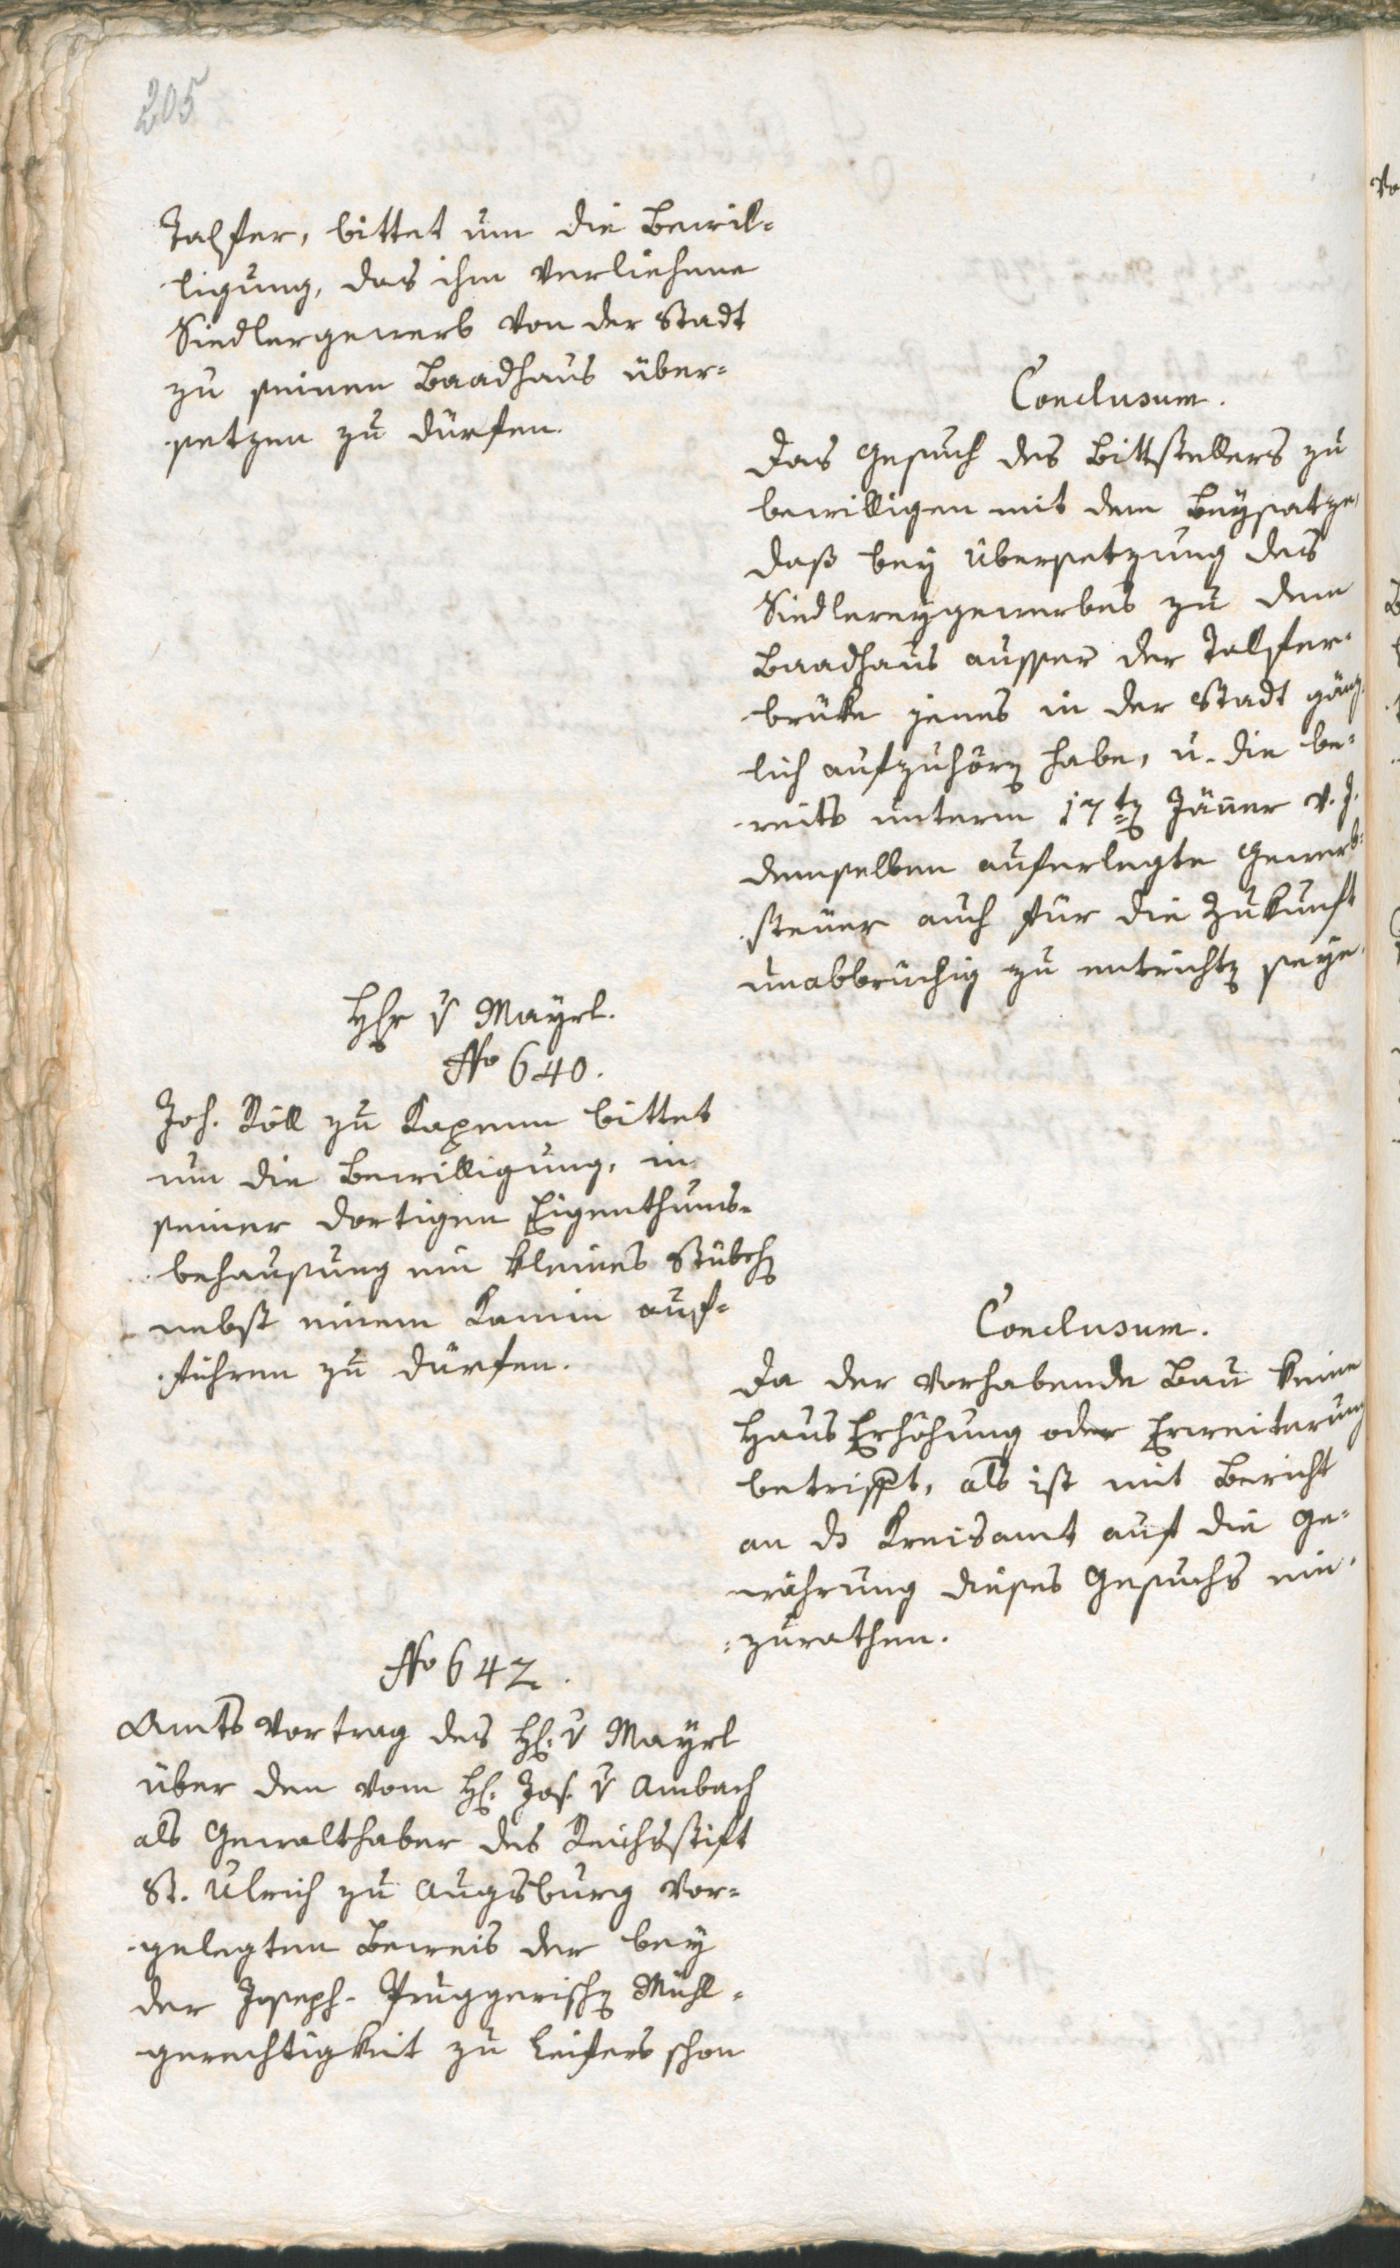 205
Talfer, bittet um die Bewil-
ligung, das ihm verliehene
Siedlergewerb von der Stadt
zu seinen Baadhaus über-
setzen zu dürfen.
Conclusum.
Das Gesuch des Bittstellers zu
bewilligen mit dem Beysatze,
daß bey Übersetzung des
Siedlereygewerbes zu dem
Baadhaus ausser der Talfer-
brüke jenes in der Stadt gänz-
lich aufzuhörn habe, u. die be-
reits unterm 17ten Jäner v. J.
demselben auferlegte Gewerb-
steuer auch für die Zukunft
unabbrüchig zu entrichtn seye.
Hr v Mayrl.
No 640.
Joh. Röll zu Kapenn bittet
um die Bewilligung, in
seiner dortigen Eigenthums-
behausung ein kleines Stübch
nebst einem Kamin auf-
führen zu dürfen.
Conclusum.
Da der vorhabende Bau keine
Haus Erhöhung oder Erweiterung
betrifft, als ist mit Bericht
an ds Kreisamt auf die Ge-
währung dieses Gesuchs ein-
zurathen.
No 642.
Amts Vortrag des H. v Mayrl
über den vom H. Jos. v Ambach
als Gewalthaber des Reichsstift
St. Ulrich zu Augsburg vor-
gelegten Beweis der bey
der Joseph- Pruggerischn Mühl-
gerechtigkeit zu Leifers schon